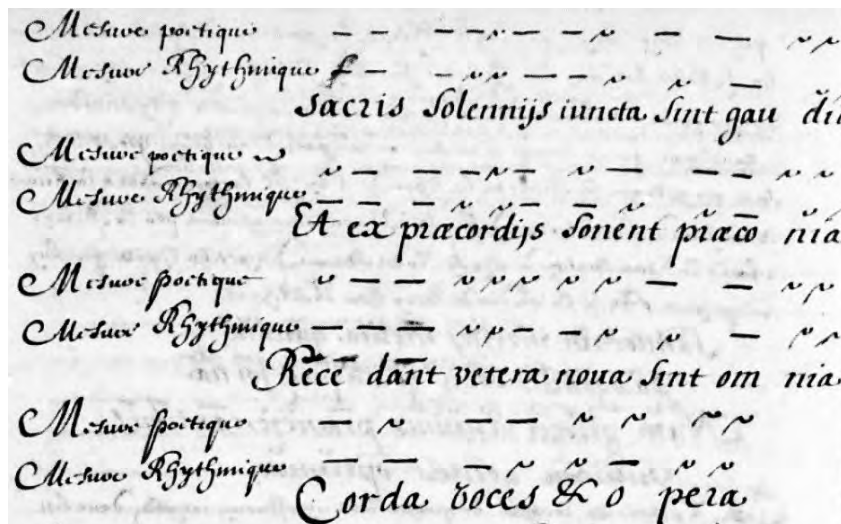 Mesure poëtique — — — ᴗ ᴗ — — ᴗ — — ᴗ ᴗ
Mesure Rhythmique — — ᴗ ᴗ — — — ᴗ —
Sacris Solennijs iuncta Sint gau di
Mesure poëtique ᴗ — — — ᴗ — ᴗ — — — ᴗ ᴗ
Mesure Rhythmique — — — ᴗ ᴗ — — ᴗ ᴗ —
Et ex præcordijs Sonent præco nia
Mesure poëtique ᴗ — — ᴗ ᴗ ᴗ ᴗ ᴗ — — ᴗ ᴗ
Mesure Rhythmique — — — ᴗ ᴗ — — ᴗ ᴗ — ᴗ ᴗ
Rece dant vetera noua Sint om nia
Mesure poëtique — ᴗ — — ᴗ ᴗ ᴗ ᴗ
Mesure Rhythmique — ᴗ ᴗ — ᴗ ᴗ
Corda voces & o pera